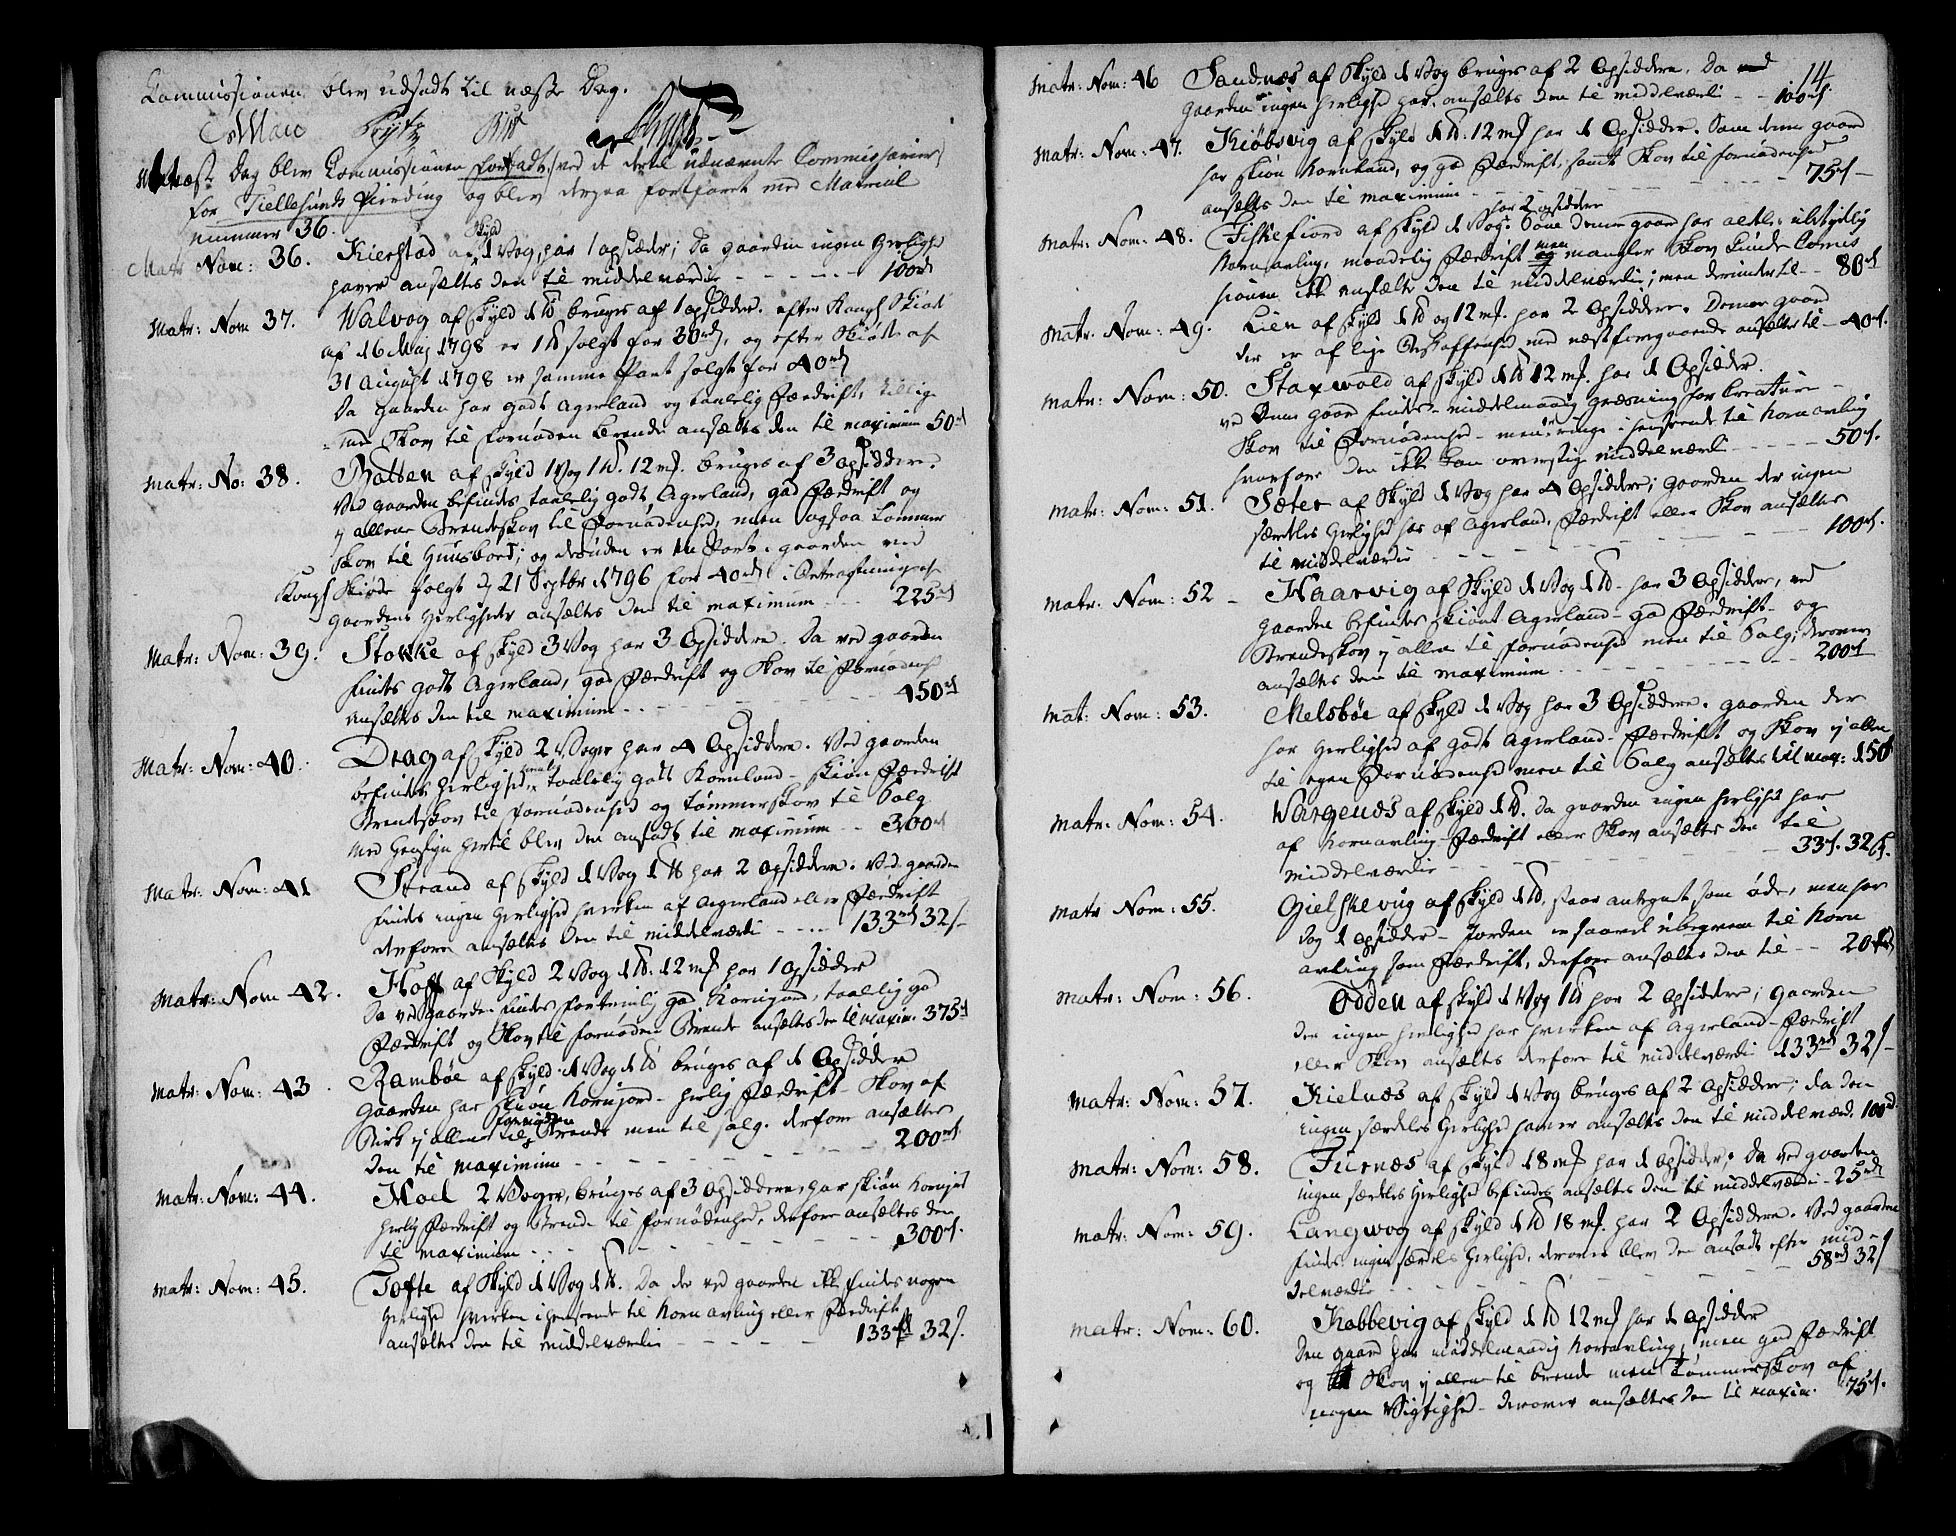 Commissionen blev udsadt til næste Dag.
Næste Dag blev Commissionen fortsadt, ved de dertil udnævnte Commissarier
for Tiellesunds Fierding og blev dergaa fortfaret med Matricul
nummer 36.
Matr Nom: 36. Kierstad af Skyld 1 Vog, har 1 opsidder; Da gaarden ingen Herlighed
haver ansættes den til middelværdie - - - 100rd
Matr: Nom 37. Walvog af Skyld 1 bruges af 1 opsidder. efter Kongl Skiøde
af 16 Maj 1798 er solgt for 30rd, og efter Skiøde af
31 August 1798 er samme Part solgt for 40rd
Da gaarden har godt agerland og taalelig Fædrift, tillige
med Skov til fornøden brende ansættes den til maximum 50rd
Matr: No: 38. Balten af Skyld 1 Vog 12 mk. bruges af 3 opsiddere.
Ved gaarden befindes taalelig godt Agerland, god Fædrift og
ej allene Brendeskov til Fornødenhed, men ogsaa Tømmer
Skov til Huusbord; og desuden er en Part i gaarden ved
Kongl Skiøde solgt d 21 Septbr 1796 for 40rd i Betragtning af
gaardens Herligheder ansættes den til maximum - - - 225rd
Matr: Nom: 39. Stokke af Skyld 3 Vog har 3 Opsiddere. Da ved gaarden
findes godt Agerland, god Fædrift og Skov til Fornødenhed
ansættes den til maximum - - - 450rd
Matr: Nom: 40. Drag af Skyld 2 Voger har 4 Opsiddere. Ved gaarden
befindes Herlighed, taalelig godt Kornland - skiøn Fædrift
Brendeskov til fornødenhed og tømmerskov til Salg
med Hensign hertil blev den ansadt til maximum - - 300rd
Matr: Nom: 41 Strand af Skyld 1 Vog 1 har 2 opsiddere. Ved gaarden
findes ingen Herlighed hverken af Agerland eller Fædrift
derfore ansættes den til middelværdi - - - 133rd 32 s
Matr: Nom 42. Hoff af Skyld 2 Vog 1 12 mk har 1 opsidder
Da ved gaarden findes fortrinlig god Kornjord, taalelig god
Fædrift og Skov til fornøden Brende ansættes den til maxim. 375rd
Matr: Nom: 43. Rambøe af Skyld 1 Vog 1 bruges af 1 Opsidder
gaarden har skiøn Kornjord - herlig Fædrift - Skov af
Birk ej allene til fornøden Brende men til salg. derfore ansættes
den til maximum - - - 200rd
Matr: Nom: 44. Hoel 2 Voger, bruges af 3 Opsiddere, har skiøn Kornjord
herlig Fædrift og Brende til fornødenhed, derfore ansættes den
til maximum - - - 300rd.
Matr: Nom: 45. Tofte af Skyld 1 Vog 1. Da der ved gaarden ikke findes nogen
Herlighed hverken i henseende til Kornavling eller Fædrift
ansættes den til middelværdi - - - 133rd 32 s.
14
Matr: Nom: 46 Sandnæs af Skyld 1 Vog bruges af 2 Opsiddere. Da
gaarden ingen Herlighed har ansættes den til middelværdi - - 100rd.
Matr: Nom: 47. Kiøbsvig af Skyld 12 mk har 1 Opsidder. Som denne gaard
har skiøn Kornland, og god Fædrift, samt Skov til fornødenhed
ansættes den til maximum - - - 75rd
Matr: Nom: 48. Fiskefiord af Skyld 1 Vog. har 2 opsiddere Som denne gaard har
Kornavling, maadelig Fædrift men mangler Skov kunde Comis
sionen ikke ansætte den til middelværdi; men derunder til - - 80rd
Matr: Nom: 49. Lien af Skyld og 12 mk. har 2 Opsiddere. Denne gaard
der er af lige Beskaffenhed med næstforegaaende ansættes til - 40rd.
Matr: Nom: 50. Staxwold af Skyld 12 mk. har 1 Opsidder.
ved denne gaard findes middelmaadig græsning for Creature -
Skov til Fornødenhed - men ringe i henseende til Kornavling
hvorfore den ikke kan overstige middelværdi - - - 50rd.
Matr: Nom: 51. Sæter af Skyld 1 Vog har 4 Opsiddere; gaarden der ingen
særdeles Herlighed har af Agerland, Fædrift eller Skov ansættes
til middelværdie - - - 100rd.
Matr: Nom: 52 - Haarvig af Skyld 1 Vog 1 - har 3 Opsiddere, ved
gaarden befindes skiønt Agerland - god Fædrift - og
Brendeskov ej allene til fornødenhed men til Salg; derover
ansættes den til maximum - - - 200rd
Matr: Nom: 53. Melsbøe af Skyld 1 Vog har 3 Opsiddere. gaarden der
har Herlighed af godt Agerland - Fædrift og Skov ej allene
til egen Fornødenhed men til Salg ansættes til max: 150rd
Matr: Nom: 54. Wargenæs af Skyld 1. Da gaarden ingen Herlighed har
af Kornavling - Fædrift eller Skov ansættes den til
middelværdie - - - 33rd. 32 s.
Matr Nom: 55. Gielskevig af Skyld 1. staar antegnet som øde, men har
dog 1 opsidder - Jorden er saavel ubeqvem til Korn
avling som Fædrift, derfore ansættes den til - - 20rd
Matr: Nom: 56. Odden af Skyld 1 Vog har 2 Opsiddere; gaarden
der ingen Herlighed har hverken af Agerland - Fædrift
eller Skov ansættes derfore til middelværdi 133rd 32 s
Matr: Nom: 57. Kielnæs af Skyld 1 Vog bruges af 2 Opsiddere; da den
ingen særdeles Herlighed haver ansættes den til middelværd. 100rd
Matr: Nom: 58. Furnæs af Skyld 18 mk har 1 opsidder; Da ved gaarden
ingen særdeles Herlighed befindes ansættes den til middelværdi - 25rd
Matr: Nom: 59. Langwog af Skyld 18 mk. har 2 Opsiddere. Ved gaarden
findes ingen særdeles Herlighed, derover blev den ansadt efter mid-
delværdie - - - 58rd 32 s
Matr: Nom: 60. Kobbevig af Skyld 12 mk har 1 opsidder
Den gaard har middelmaadig Kornavling, men god Fædrift
og Skov ej allene til brende men Tømmerskov af
nogen Vigtighed - derover ansættes den til maxim. 75rd.